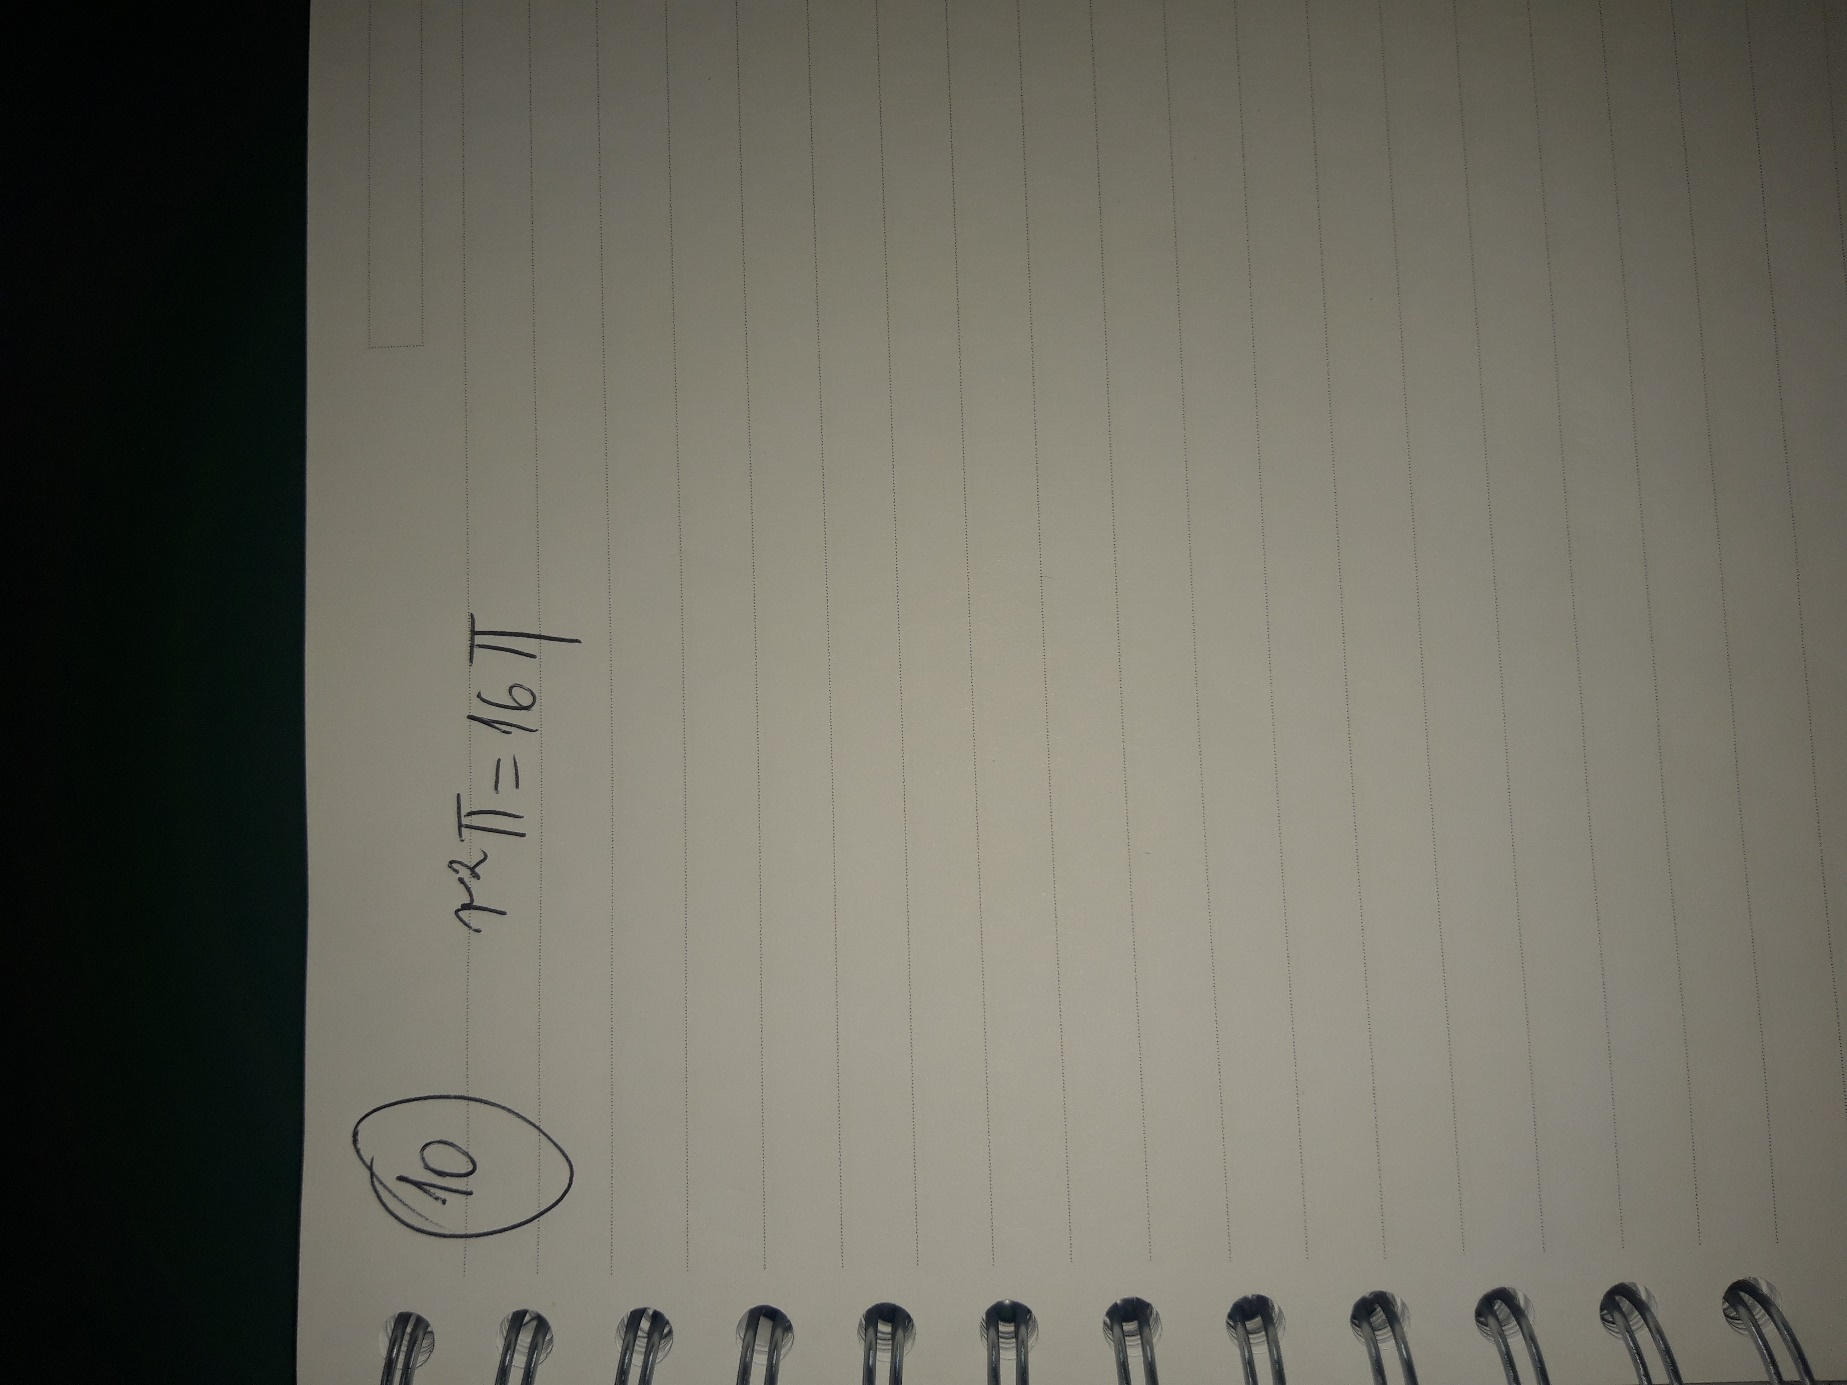 10
r²π=16π